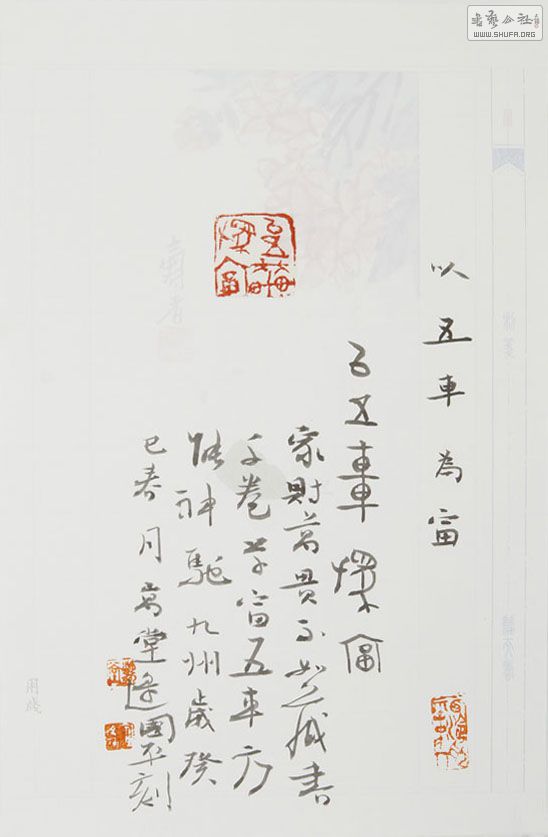 書藝公社
WWW.SHUFA.ORG
以五車為富
㠯五車爲富
家財萬貫不如藏書
千卷学富五车方
能神馳九州歲癸
巳春月寓堂逯國平刻